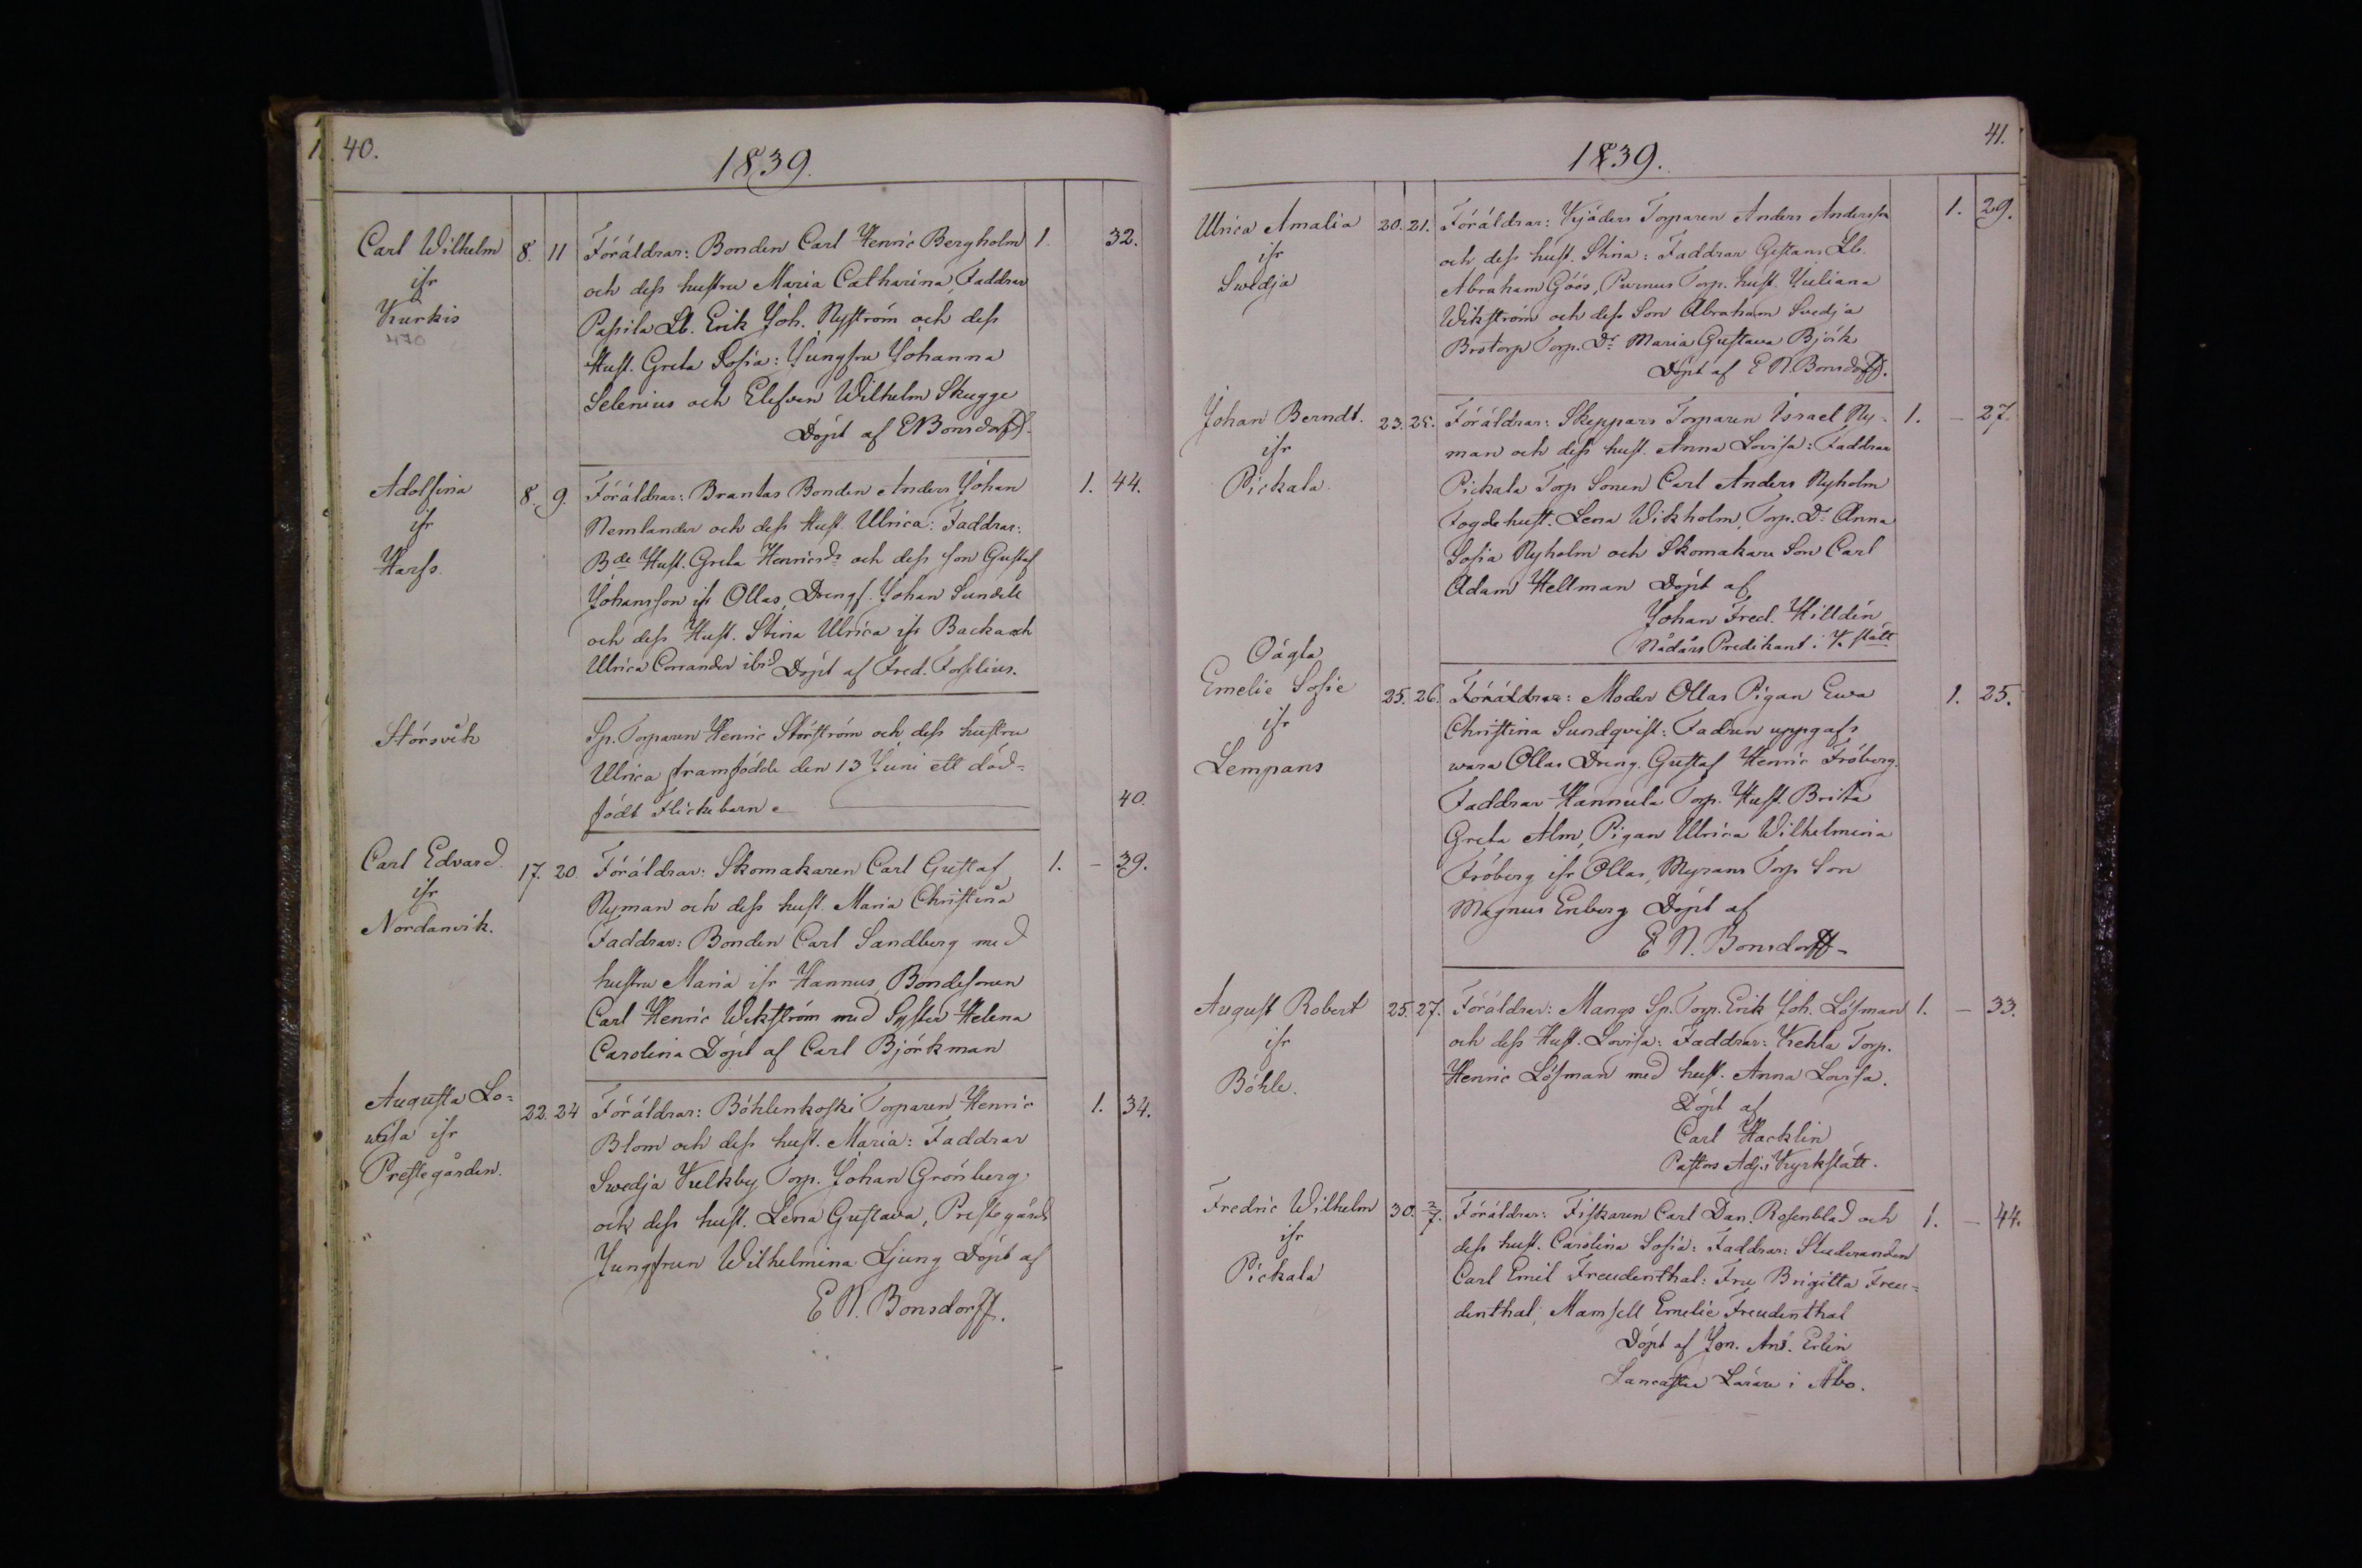 40.
1839.
Carl Wilhelm 8. 11 Föräldrar: Bonden Carl Henric Bergholm 1. 32.
ifr och dess hustru Maria Catharina, Faddrar
Kurkis Passila Lb. Erik Joh. Nyström och dess
Hust. Greta Sofia: Jungfru Johanna
Selenius och Elefven Wilhelm Skugge
Döpt af E N Bonsdorff.
Adolfina 8. 9. Föräldrar: Brantas Bonden Anders Johan 1. 44.
ifr Nemlander och dess Hust. Ulrica: Faddrar:
Harfs. Bde Hust. Greta Henricsdr och dess son Gustaf
Johansson ifr Ollas, Drengs. Johan Sundell
och dess Hust. Stina Ulrica ifr Backa och
Ulrica Corrander ibid Döpt af Fred. Forselius.
Störsvik Sp. Torparen Henric Störström och dess hustru
Ulrica framfödde den 13 Juni ett död-
födt Flickebarn 40.
Carl Edvard 17. 20. Föräldrar: Skomakaren Carl Gustaf 1. – 39.
ifr Nyman och dess hust. Maria Christina
Nordanvik. Faddrar: Bonden Carl Sandberg med
hustru Maria ifr Hannus, Bondesonen
Carl Henric Wikström med Syster Helena
Carolina Döpt af Carl Björkman
Augusta Lo= 22. 24 Föräldrar: Böhlenkoski Torparen Henric 1. 34.
wisa ifr Blom och dess hust. Maria: Faddrar
Prestegården. Swedja Kulkby Torp. Johan Grönberg
och dess hust. Lena Gustava, Prestegårds
Jungfrun Wilhelmina Ljung Döpt af
E N. Bonsdorff.
41.
1839.
Ulrica Amalia 20. 21. Föräldrar: Kjäders Torparen Anders Andersson 1. 29.
ifr och dess hust. Stina: Faddrar Gestans Lb.
Swedja Abraham Göös, Purnus Torp. hust. Juliana
Wikström och dess Son Abraham Svedja
Brotorp Torp. Dr Maria Gustava Björk
Döpt af E N. Bonsdorff.
Johan Berndt. 23. 25. Föräldrar: Skeppars Torparen Israel Ny- 1. – 27.
ifr man och dess hust. Anna Lovisa: Faddrar
Pickala. Pickala Torp Sonen Carl Anders Nyholm
Fogde hust. Lena Wikholm, Torp. Dr Anna
Sofia Nyholm och Skomakare Son Carl
Adam Hellman Döpt af
Johan Fred. Hilldén
Nådårs Predikant i K. slätt
Oägta
Emelie Sofie 25. 26. Föräldrar: Moder Ollas Pigan Ewa 1. 25.
ifr Christina Sundqvist: Fadren uppgafs
Lempans wara Ollas Dreng. Gustaf Henric Fröberg.
Faddrar Hannula Torp. Hust. Brita
Greta Alm, Pigan Ulrica Wilhelmina
Fröberg ifr Ollas, Myrans Torp Son
Magnus Enberg Döpt af
E N. Bonsdorff
August Robert 25. 27. Föräldrar: Mangs Sp. Torp. Erik Joh. Löfman 1. – 33.
ifr och dess Hust. Lovisa: Faddrar: Kehla Torp.
Böhle. Henric Löfman med hust. Anna Lovisa.
Döpt af
Carl Hacklin
Pastors Adj. i Kyrkslätt.
Fredric Wilhelm 30. 2/7. Föräldrar: Fiskaren Carl Dan. Rosenblad och 1. – 44.
ifr dess hust. Carolina Sofia: Faddrar: Studeranden
Pickala Carl Emil Freudenthal: Fru Brigitta Freu=
denthal, Mamsell Emelie Freudenthal
Döpt af Jon. Ant. Erlin
Lancaster Lärare i Åbo.